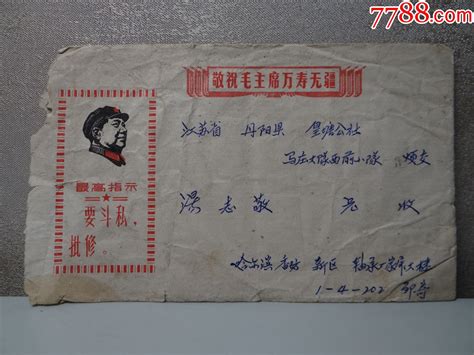 7788.com
敬祝毛主席万寿无疆
江苏省 丹阳县 皇塘公社
马庄大队西前小队 烦交
汤志敬 兄收
最高指示
要斗私，
批修。
哈尔滨 香坊 新区 轴承
1-4-202